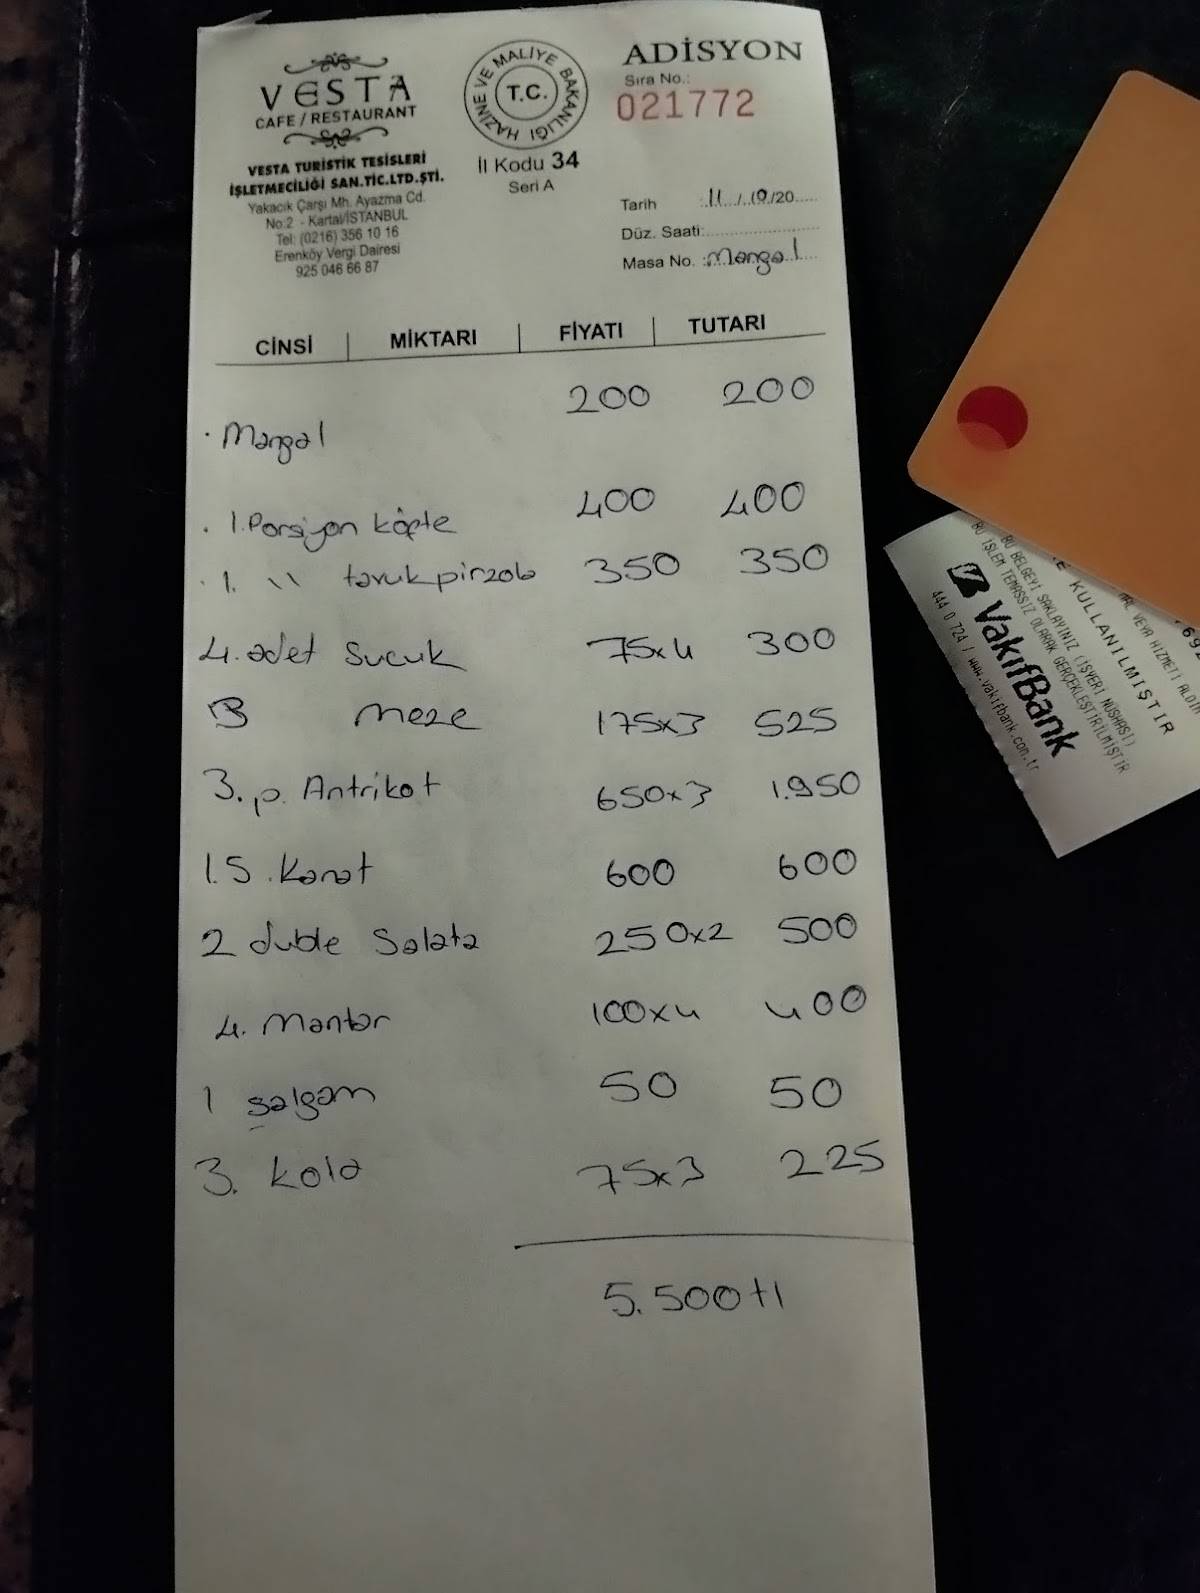 VESTA
CAFE / RESTAURANT
VESTA TURİSTİK TESİSLERİ
İŞLETMECİLİĞİ SAN.TİC.LTD.ŞTİ.
Yakacık Çarşı Mh. Ayazma Cd.
No:2 - Kartal/İSTANBUL
Tel: (0216) 356 10 16
Erenköy Vergi Dairesi
925 046 66 87
T.C. HAZİNE VE MALİYE BAKANLIĞI
İl Kodu 34
Seri A
ADİSYON
Sıra No.:
021772
Tarih :11/10/20
Düz. Saati:
Masa No. :Mangal
CİNSİ MİKTARI FİYATI TUTARI
· Mangal 200 200
. 1.Porsiyon köfte 400 400
. 1. \\ tavukpirzola 350 350
4. adet sucuk 75x4 300
3 meze 175x3 525
3. p. Antrikot 650x3 1.950
1.S. Kanat 600 600
2 duble Salata 250x2 500
4. Mantar 100x4 400
1 şalgam 50 50
3. Kola 75x3 225
5.500 tl
MAL VEYA HİZMETİ ALDIM
E KULLANILMIŞTIR
BU BELGEYİ SAKLAYINIZ (İŞYERİ NÜSHASI)
BU İŞLEM TEMASSIZ OLARAK GERÇEKLEŞTİRİLMİŞTİR
VakıfBank
444 0 724 / www.vakifbank.com.tr